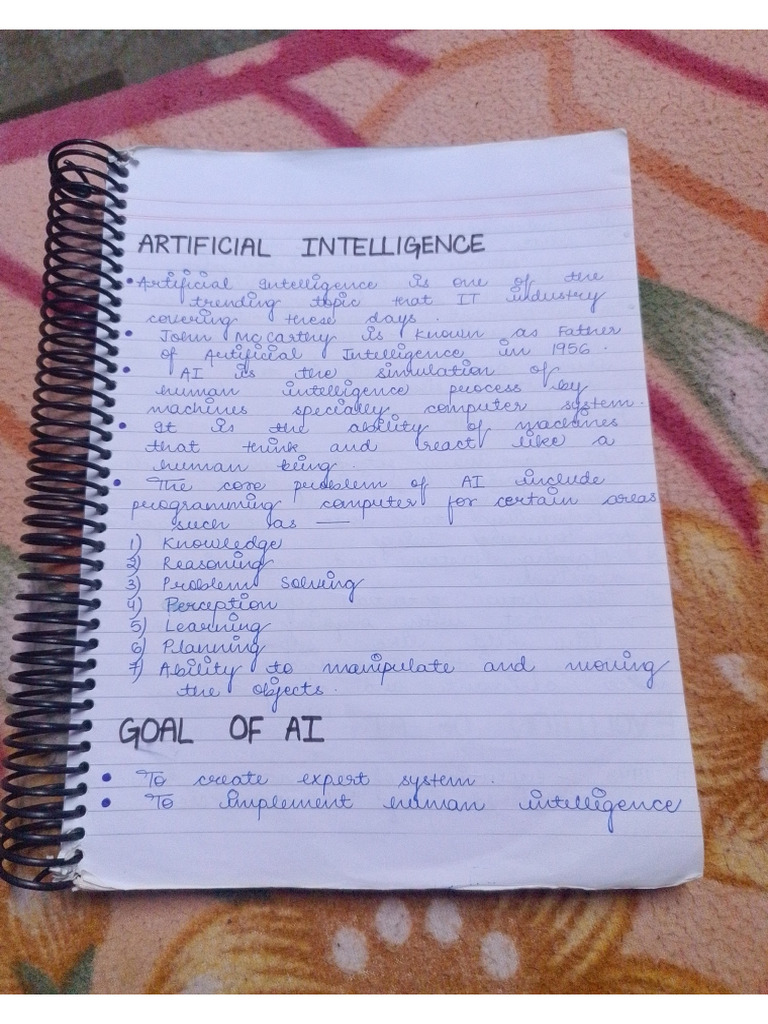 ARTIFICIAL INTELLIGENCE
• Artificial Intelligence is one of the
trending topic that IT industry
covering these days.
• John McCarthy is known as Father
of Artificial Intelligence in 1956.
• AI is the simulation of
human intelligence process by
machines specially computer system.
• It is the ability of machines
that think and react like a
human being.
• The core problem of AI include
programming computer for certain areas
such as —
1) Knowledge
2) Reasoning
3) Problem Solving
4) Perception
5) Learning
6) Planning
7) Ability to manipulate and moving
the objects.
GOAL OF AI
• To create expert system.
• To Implement human intelligence